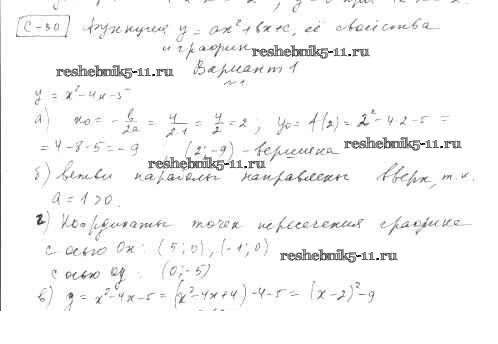 С-30 Функция y = ax² + bx + c, её свойства
и график
reshebnik5-11.ru reshebnik5-11.ru
Вариант 1
№1
y = x² - 4x - 5
а) x₀ = -b/2a = 4/2·1 = 4/2 = 2; y₀ = f(2) = 2² - 4·2 - 5 =
= 4 - 8 - 5 = -9 (2; -9) - вершина
reshebnik5-11.ru
б) ветви параболы направлены вверх, т.к.
a = 1 > 0.
reshebnik5-11.ru
г) Координаты точек пересечения графика
с осью Ox: (5; 0), (-1; 0)
reshebnik5-11.ru
с осью Oy: (0; -5)
в) y = x² - 4x - 5 = (x² - 4x + 4) - 4 - 5 = (x - 2)² - 9